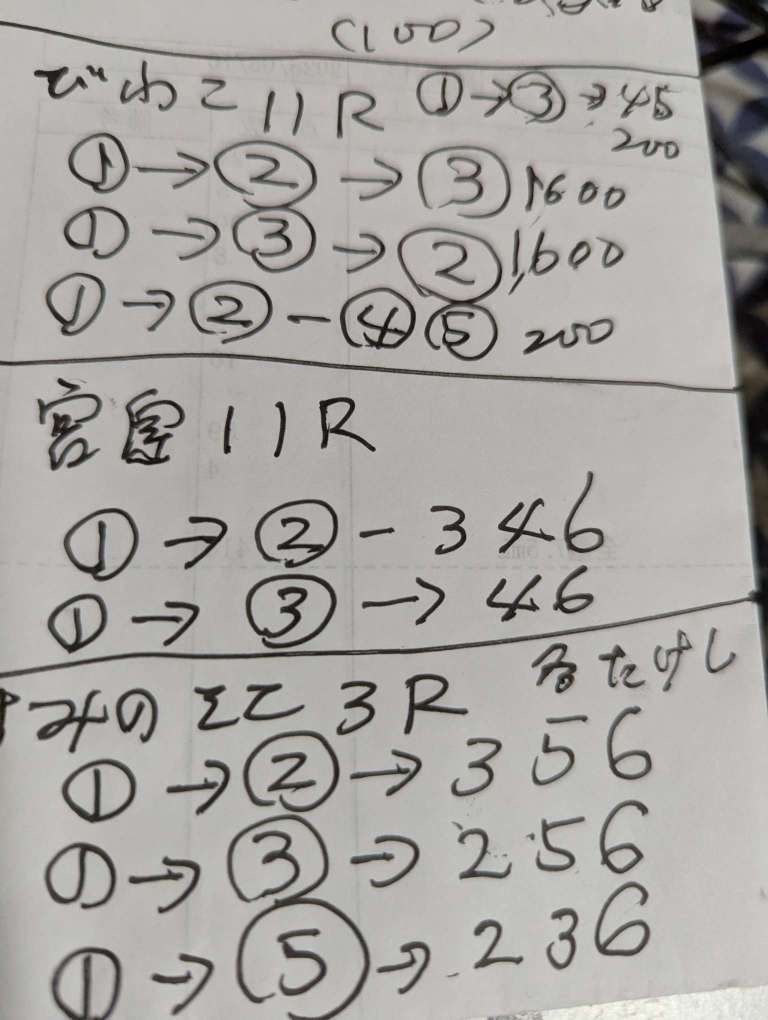 (100)
びわこ 11R ①→③→45
200
①→②→③ 1,600
①→③→② 1,600
①→②-④⑤ 200
宮島 11R
①→②-346
①→③→46
すみのえて 3R たけし
①→②→356
①→③→256
①→⑤→236